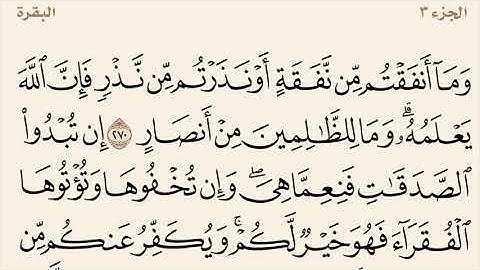 الجزء ٣ البقرة
وَمَآ أَنفَقْتُم مِّن نَّفَقَةٍ أَوْ نَذَرْتُم مِّن نَّذْرٍ فَإِنَّ ٱللَّهَ
يَعْلَمُهُۥۗ وَمَا لِلظَّٰلِمِينَ مِنْ أَنصَارٍ ٢٧٠ إِن تُبْدُوا۟
ٱلصَّدَقَٰتِ فَنِعِمَّا هِىَۖ وَإِن تُخْفُوهَا وَتُؤْتُوهَا
ٱلْفُقَرَآءَ فَهُوَ خَيْرٌ لَّكُمْۚ وَيُكَفِّرُ عَنكُم مِّن